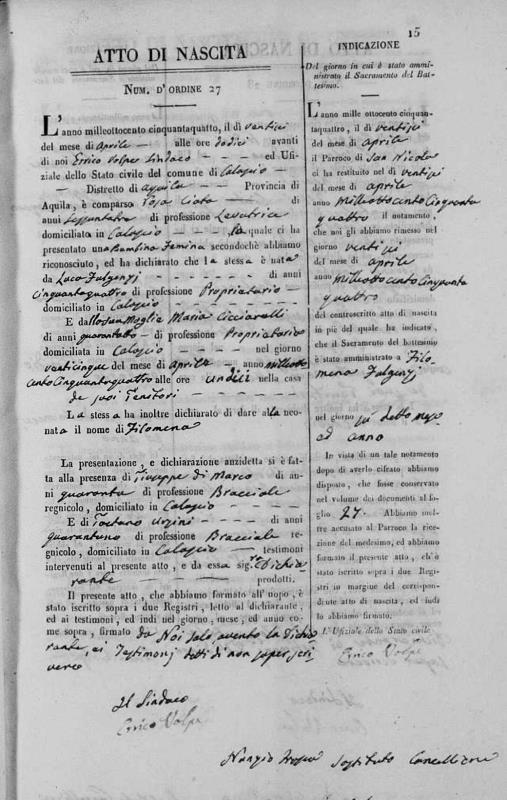 15
ATTO DI NASCITA
NUM. D'ORDINE 27
L'anno milleottocento cinquantaquatto, il dì ventisei
del mese di Aprile — alle ore dodici avanti
di noi Errico Volpe Sindaco — — — ed Ufi-
ziale dello Stato civile del comune di Calascio —
— Distretto di Aquila — Provincia di
Aquila, è comparso — di
anni — di professione Levatrice
domiciliata in Calascio — — — la quale ci ha
presentato una Bambina Femina secondochè abbiamo
riconosciuto, ed ha dichiarato che la stessa è nata
da Luca Fulgenzj — — — — di anni
cinquantaquattro di professione Proprietario —
domiciliato in Calascio — — — —
E dalla sua Moglie Maria Cicciarelli
di anni quarantotto — di professione Proprietaria
domiciliata in Calascio — — — nel giorno
venticinque del mese di Aprile — anno milleotto
cento Cinquantaquattro alle ore undici nella casa
de suoi Genitori — — — —
La stessa ha inoltre dichiarato di dare alla neo-
nata il nome di Filomena
La presentazione, e dichiarazione anzidetta si è fat-
ta alla presenza di Giuseppe di Marco di an-
ni quaranta di professione Bracciale
regnicolo, domiciliato in Calascio — — —
E di Gaetano — — — — di anni
quarantuno di professione Bracciale re-
gnicolo, domiciliato in Calascio — testimoni
intervenuti al presente atto, e da essa sig.ra Dichia
rante — — — — prodotti.
Il presente atto, che abbiamo formato all'uopo, è
stato iscritto sopra i due Registri, letto al dichiarante,
ed ai testimonj, ed indi nel giorno, mese, ed anno co-
me sopra, firmato da Noi solo avento la Dichia
rante, ei Testimonj detti di non saper scri
vere
Il Sindaco
Errico Volpe
INDICAZIONE
Del giorno in cui è stato ammi-
nistrato il Sacramento del Bat-
tesimo.
L'anno mille ottocento cinquan-
taquattro, il dì ventisei
del mese di aprile
il Parroco di San Nicola
ci ha restituito nel dì ventisei
del mese di aprile
anno milleottocento Cinquanta
quattro il notamento,
che noi gli abbiamo rimesso nel
giorno ventisei
del mese di aprile
anno milleottocento Cinquanta
quattro
del controscritto atto di nascita
in piè del quale ha indicato,
che il Sacramento del battesimo
è stato amministrato a Filo-
mena Fulgenzj
nel giorno detto mese
ed anno
In vista di un tale notamento
dopo di averlo cifrato abbiamo
disposto, che fosse conservato
nel volume dei documenti al fo-
glio 27. Abbiamo inol-
tre accusato al Parroco la rice-
zione del medesimo, ed abbiamo
formato il presente atto, ch'è
stato iscritto sopra i due Regi-
stri in margine del corrispon-
dente atto di nascita, ed indi
lo abbiamo firmato.
L'Ufiziale dello Stato civile
Errico Volpe
Nunzio Sostituto Cancelliere